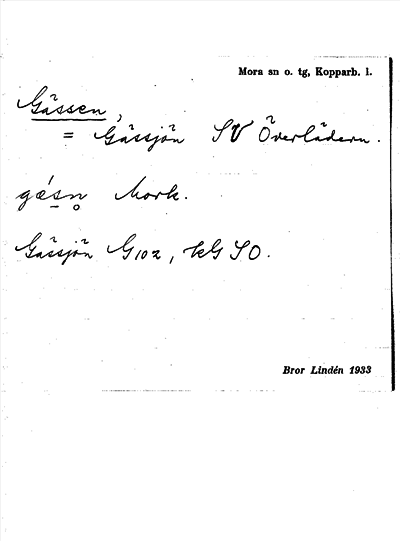 Mora sn o. tg, Kopparb. l.
Gässen,
= Gässjön SV Överlädern.
gǽsn̥ Mork.
Gässjön G102, kG SO.
Bror Lindén 1933